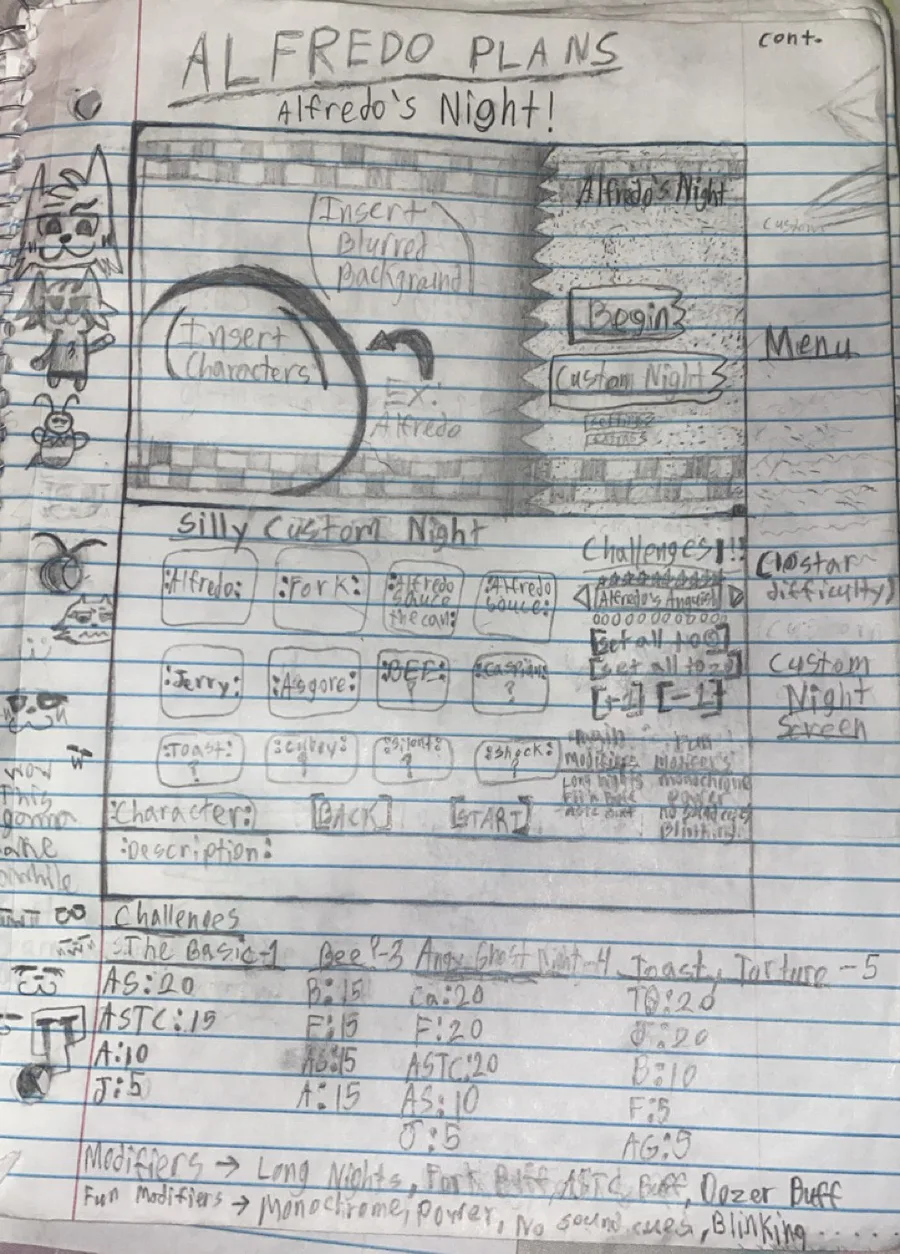 ALFREDO PLANS
cont.
Alfredo's Night!
Insert
Blurred
Background
Alfredo's Night
Custom
Begin
Insert
Characters
Menu
Custom Night
EX:
Alfredo
Silly Custom Night
Challenges!!!
:Alfredo: :Fork: :Alfredo sauce the can: :Alfredo sauce:
(10 star
difficulty)
Alfredo's Anguish
[set all to 0]
[set all to 20]
[+1] [-1]
:Jerry: :Asgore: :BEE: ? :Caspian: ?
Custom
Night
Screen
:Toast: ? ? :silent: ? :shock: ?
Modifiers
Long nights
monochrome
power
no sound cues
Blinking
:Character: [BACK] [START]
:Description:
wow
This
gonna
awhile
Challenges
:The Basic-1 Bee!-3 Angry Ghost Night-4 Toasty Torture-5
AS:20 B:15 Ca:20 TO:20
ASTC:15 F:15 F:20 J:20
A:10 AS:15 ASTC:20 B:10
J:5 A:15 AS:10 F:5
J:5 AG:5
Modifiers → Long Nights, Fork Buff, ASTC Buff, Dozer Buff
Fun Modifiers → Monochrome, Power, No sound cues, Blinking....